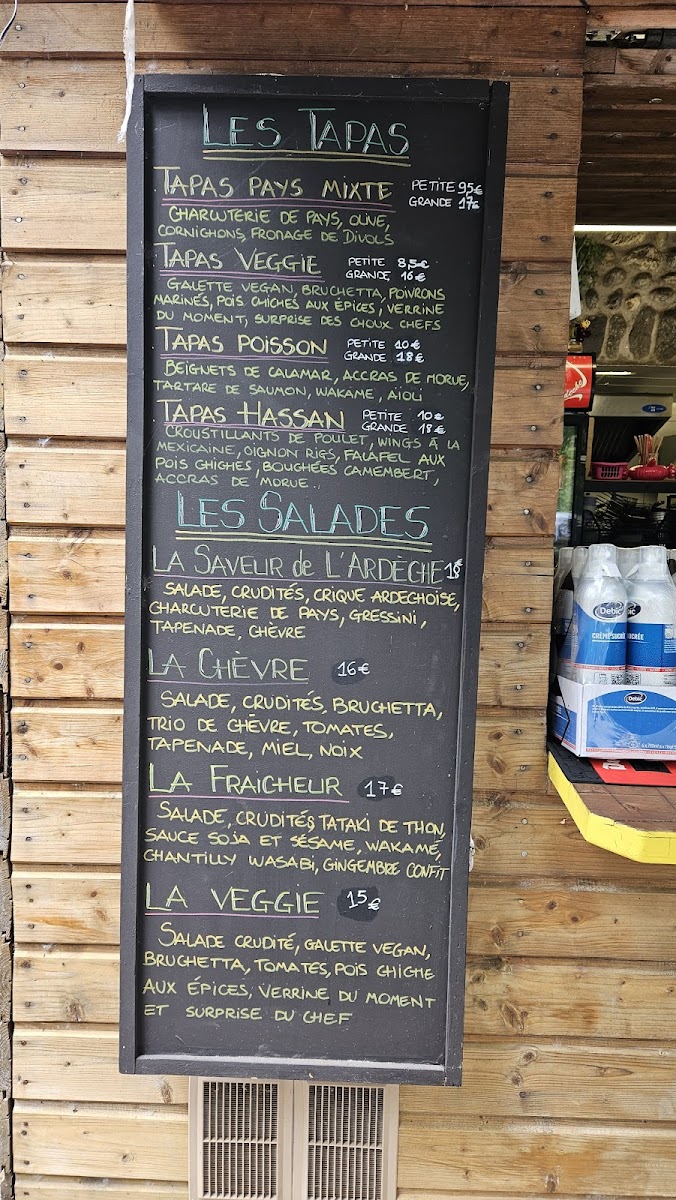 LES TAPAS
TAPAS PAYS MIXTE PETITE 9,5€
GRANDE 17€
CHARCUTERIE DE PAYS, OLIVE,
CORNICHONS, FROMAGE DE DIVOLS
TAPAS VEGGIE PETITE 8,5€
GRANDE 16€
GALETTE VEGAN, BRUCHETTA, POIVRONS
MARINÉS, POIS CHICHES AUX ÉPICES, VERRINE
DU MOMENT, SURPRISE DES CHOUX CHEFS
TAPAS POISSON PETITE 10€
GRANDE 18€
BEIGNETS DE CALAMAR, ACCRAS DE MORUE,
TARTARE DE SAUMON, WAKAME, AÏOLI
TAPAS HASSAN PETITE 10€
GRANDE 18€
CROUSTILLANTS DE POULET, WINGS À LA
MEXICAINE, OIGNON RIGS, FALAFEL AUX
POIS CHICHES, BOUCHÉES CAMEMBERT,
ACCRAS DE MORUE..
LES SALADES
LA SAVEUR de L'ARDÈCHE 18€
SALADE, CRUDITÉS, CRIQUE ARDECHOISE,
CHARCUTERIE DE PAYS, GRESSINI,
TAPENADE, CHÈVRE
LA CHÈVRE 16€
SALADE, CRUDITÉS, BRUCHETTA,
TRIO DE CHÈVRE, TOMATES,
TAPENADE, MIEL, NOIX
LA FRAICHEUR 17€
SALADE, CRUDITÉS, TATAKI DE THON,
SAUCE SOJA ET SÉSAME, WAKAMÉ,
CHANTILLY WASABI, GINGEMBRE CONFIT
LA VEGGIE 15€
SALADE CRUDITÉ, GALETTE VEGAN,
BRUCHETTA, TOMATES, POIS CHICHE
AUX ÉPICES, VERRINE DU MOMENT
ET SURPRISE DU CHEF
Debic
CRÈME SUCRÉE
Debic